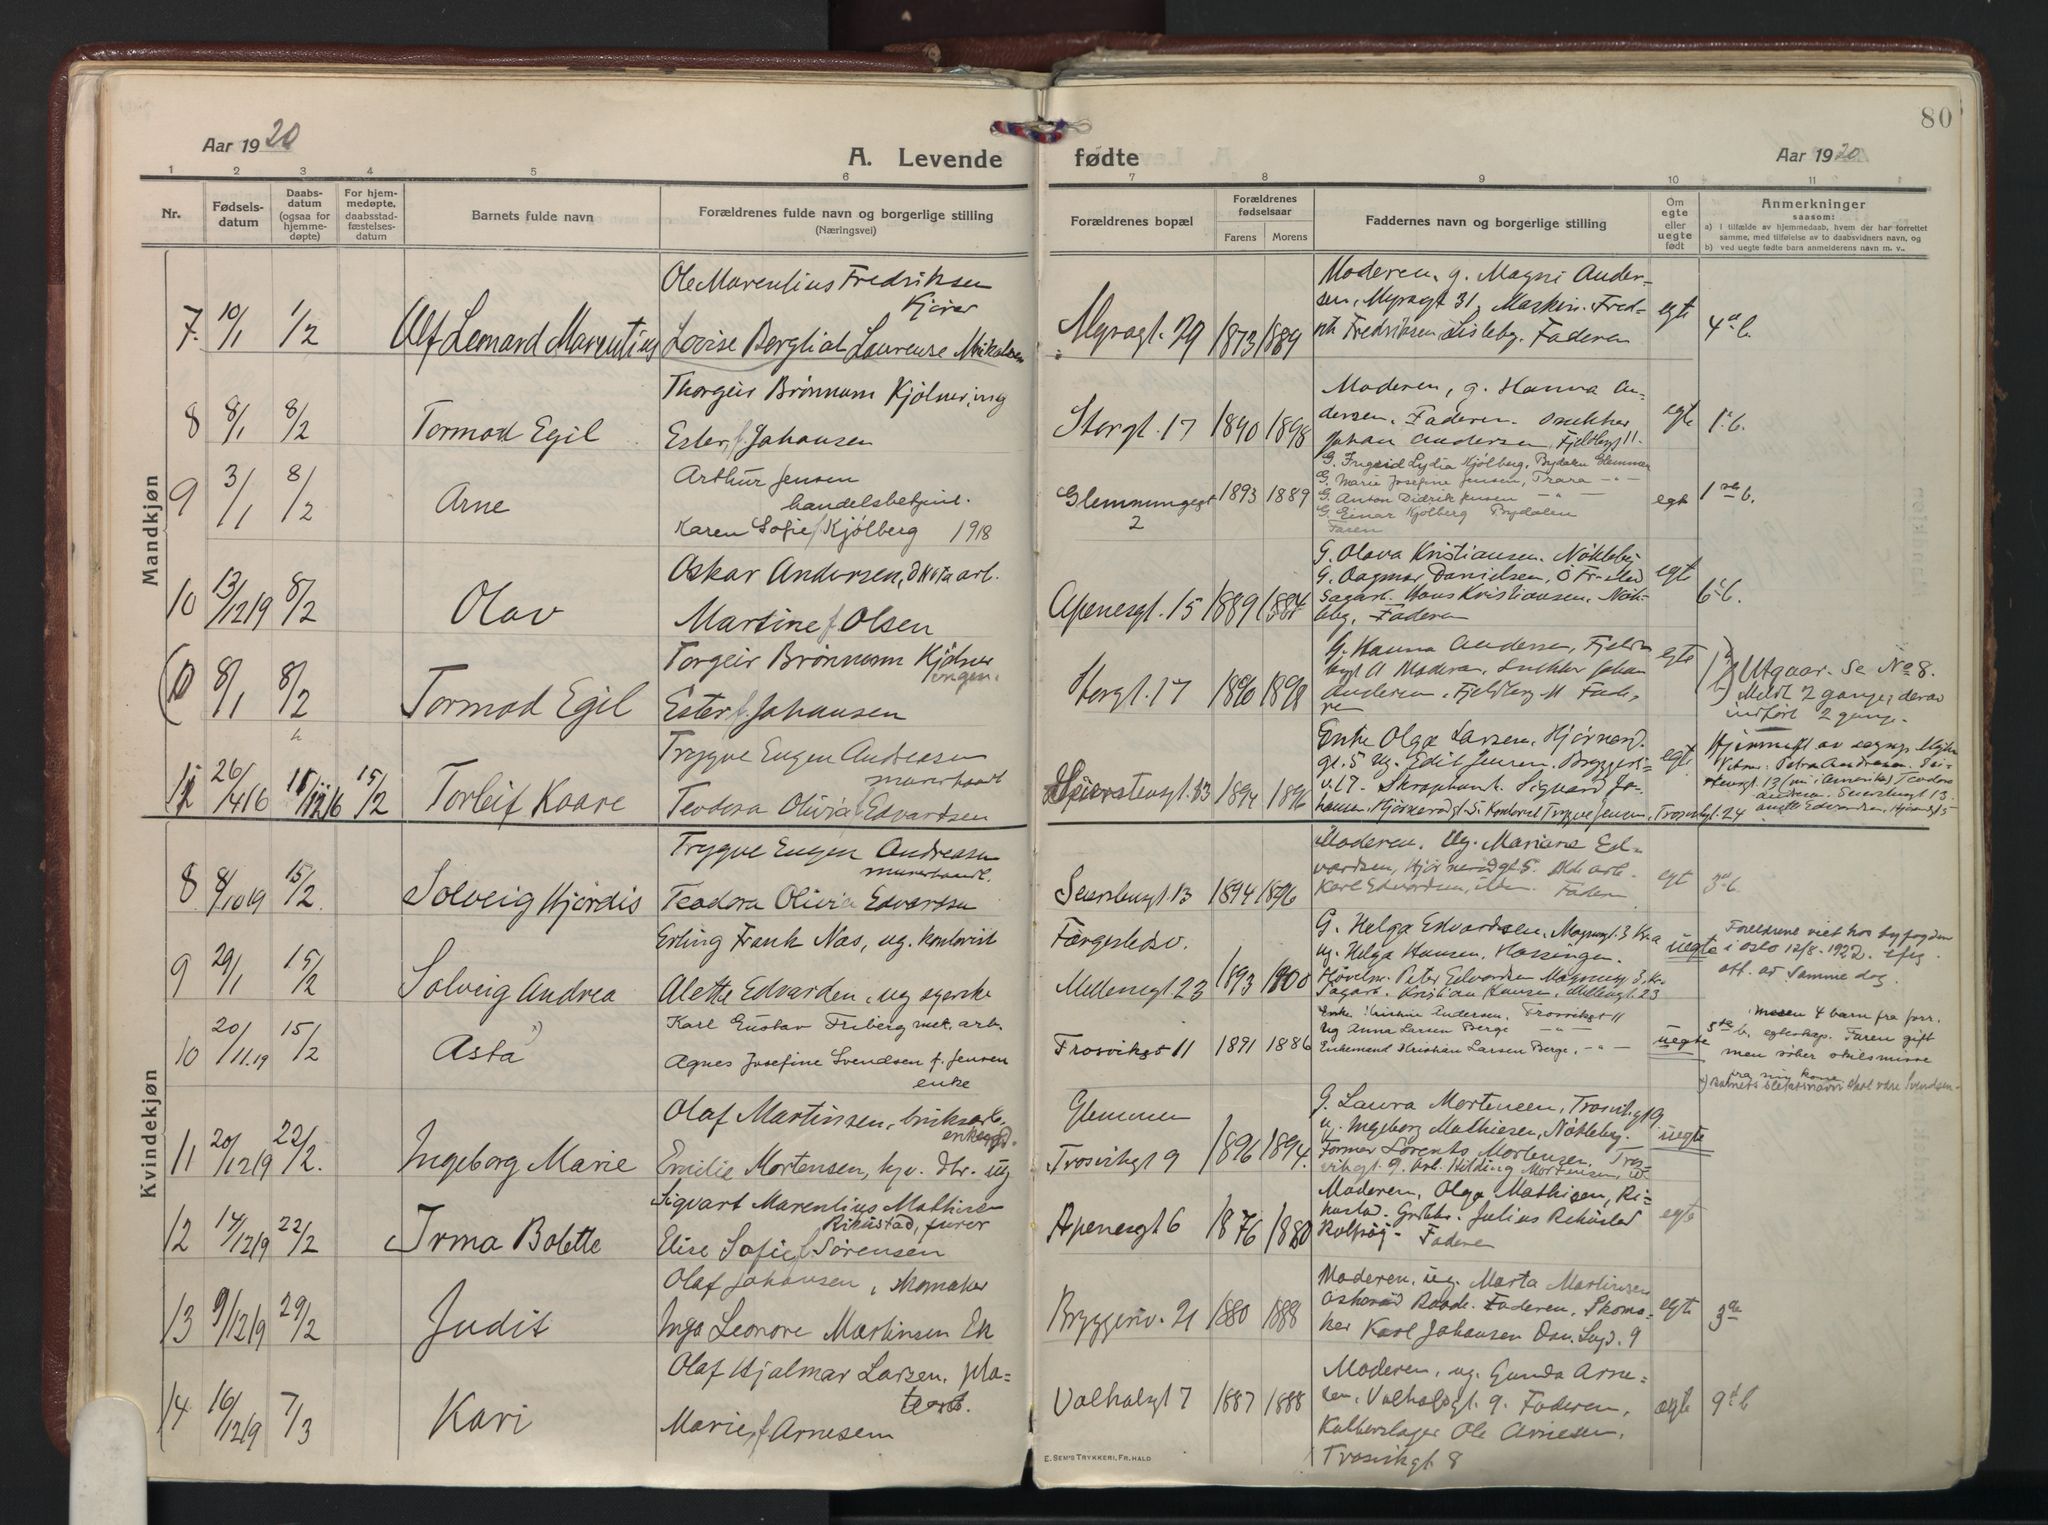 80
Aar 1920
A. Levende
fødte
Aar 1920
1 2 3 4 5 6
7 8 9 10 11
Nr.
Fødselsdatum
Daabsdatum (ogsaa for hjemmedøpte)
For hjemmedøpte, daabsstadfæstelsesdatum
Barnets fulde navn
Forældrenes fulde navn og borgerlige stilling
(Næringsvei)
Forældrenes bopæl
Forældrenes fødselsaar
Farens Morens
Faddernes navn og borgerlige stilling
Om egte eller uegte født
Anmerkninger
saasom:
a) I tilfælde av hjemmedaab, hvem der har forrettet
samme, med tilføielse av to daabsvidners navn, og
b) ved uegte fødte barn anmelderens navn m. v..
Mandkjøn
Ole Marentius Fredriksen
7. 10/1 1/2 Alf Lennard Marentius Lovise Bergliot Laurense Mikalsen
29 1873 1889
Moderen, g. Magni Andersen, Myragt 31, Maskin. Fredrik Fredriksen Lisleby. Faderen
egte 4de b.
Thorgeir Brønmum Kjølner, ing
8 8/1 8/2 Tormod Egil Ester f. Johansen
Storgt. 17 1890 1898
Moderen, g. Hanna Andersen. Faderen. Snekker
Johan Andersen, Fjeldbygt 11.
egte 1ste b.
Arthur Jensen
handelsbetjent.
9 3/1 8/2 Arne
Karen Sofie f. Kjølberg 1918
Glemmengegt 2 1893 1889
G. Ingrid Lydia Kjølberg, Bydalen Glemmen
G. Marie Josefine Jensen, Trara - " -
G. Anton Didrik Jensen - " -
G. Einar Kjølberg Bydalen
Faren
egte 1ste b.
Oskar Andersen,
10 13/12 19 8/2 Olav Martine f. Olsen
Apenesgt. 15 1889 1884
G. Olava Kristiansen. Nøkleby
G. Dagmar Danielsen, Ø Fr.stad
Sagarb. Hans Kristiansen, Nøkleby, Faderen
egte 6te b.
Torgeir Brønmum Kjølner
ingen.
(10 8/1 8/2 Tormod Egil Ester f. Johansen
Storgt. 17 1890 1898
G. Hanna Andersen, Fjeldbygt 11 Moderen, Snekker Johan
Andersen, Fjeldbygt 11 Faderen
egte
Utgaar. Se No 8.
Meldt 2 gange, derav
indført 2 gange.
Trygve Eugen Andreasen
murerhandl
11 26/4 16 11/12 16 15/2 Torleif Kaare
Teodora Olivia f. Edvardsen
13 1894 1896
Enke Olga Larsen, Hjørnerd.
gt. 5 Ug. Edit Jensen. Bryggeri
v. 17 - Sigvard Johansen, Hjørnerødgt 5. Kontorist Trygve Jensen, Trosvikgt. 24
egte
Kvindekjøn
Trygve Eugen Andreasen
murerhandl.
8 8/10 19 15/2 Solveig Hjørdis Teodora Olivia Edvardsen
13 1894 1896
Moderen. Ug. Mariane Edvardsen, Hjørnerødgt 5.
Karl Edvardsen, Faderen
egt 3de b.
Erling Frank Næs, ug. kontorist
9 29/1 15/2 Solveig Andrea Alette Edvardsen, ug syerske
Færgestedsv.
Møllergt 23 1893 1900
G. Helga Edvardsen, 3 Kr.a
ug. Helga Hansen, Hassingen.
Høvelm. Peter Edvardsen 3, Kr.
Sagarb. Kristian Hansen, Møllergt. 23
uegte
Foreldrene viet hos byfogden
i Oslo 12/8. 1922. Efg.
att. av samme dag.
Karl Gustav Friberg met. arb.
10 20/11. 19 15/2 Asta ¹)
Agnes Josefine Svendsen f. Jensen
enke
Trosvikgt 11 1891 1886
Enke Kristine Andersen, Trosvikgt 11
Ug Anna Larsen Berge - " -
Enkemand Kristian Larsen Berge, - " -
uegte
5te b.
4 barn fra forr.
egteskap. Faren gift
men søker skilsmisse
fra sin kone
¹) Barnets slektsnavn skal være Svendsen
Olaf Martinsen, bruksarb.
enkemd.
11 20/12 19 22/2. Ingeborg Marie Emilie Mortensen, hjv. dtr. ug
Glemmen
Trosvikgt 9 1896 1894.
G. Laura Mortensen, Trosvikgt 9
u. Ingeborg Mathiesen, Nøkleby.
Former Lorents Mortensen, Trosvikgt. 9. Arb. Hilding Mortensen,
uegte
Sigvart Marentius Mathisen
Rikustad, fører
12 14/12 19 22/2 Irma Bolette Elise Sofie f. Sørensen
Apenesgt 6 1876 1880
Moderen, Olga Mathisen, Rikustad. Julius Rikustad
Rolfsøy - Faderen
egte
Olaf Johansen, skomaker
13 9/12 19 29/2 Judit Inga Leonore Martinsen Ek
Bryggeriv. 21 1880 1888
Moderen, ug. Marta Martinsen
Raade. Faderen, Skomaker Karl Johansen 9
egte 3de
Olaf Hjalmar Larsen, platearb.
14 16/12 19 7/3 Kari Marie f. Arnesen
Valhalgt 7 1887 1888
Moderen, ug. Gunda Arnesen, Valhalsgt. 9. Faderen,
Ole Arnesen,
Trosvikgt 8
egte 9de b
E. SEM'S TRYKKERI, FR.HALD